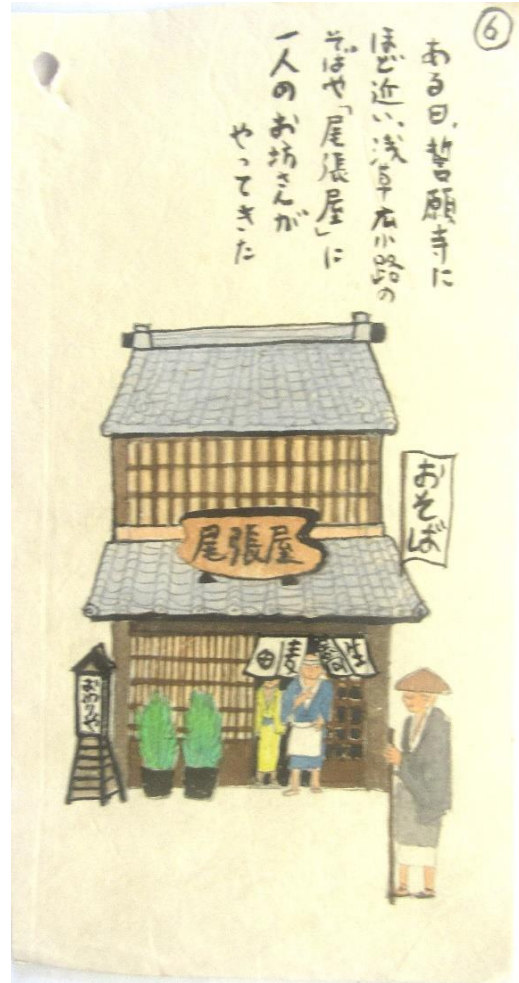 ⑥
ある日、誓願寺に
ほど近い、浅草広小路の
そばや「尾張屋」に
一人のお坊さんが
やってきた
おそば
尾張屋
おわりや